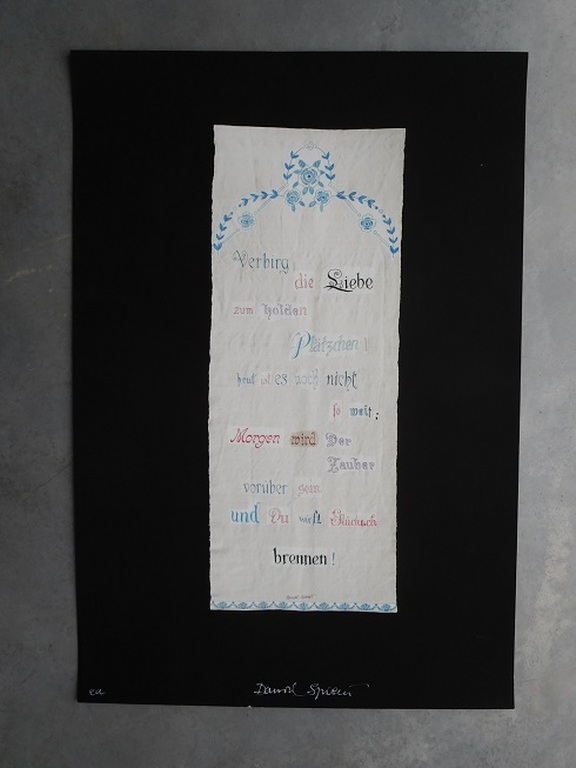 Verbirg
die Liebe
zum holden
Plätzchen!
heut ist es noch nicht
so weit;
Morgen wird Der
Zauber
vorüber sein
und Du wirst
brennen!
ea